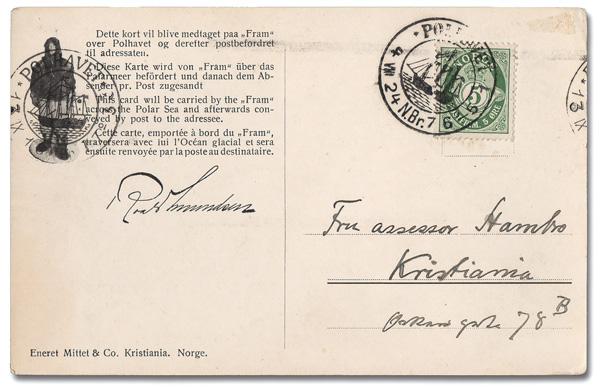 Dette kort vil blive medtaget paa „Fram“
over Polhavet og derefter postbefordret
til adressaten.
Diese Karte wird von „Fram“ über das
Polarmeer befördert und danach dem Ab-
sender pr. Post zugesandt
This card will be carried by the „Fram“
across the Polar Sea and afterwards con-
veyed by post to the adressee.
Cette carte, emportée à bord du „Fram“,
traversera avec lui l'Océan glacial et sera
ensuite renvoyée par la poste au destinataire.
POLHAVET
Roald Amundsen
Eneret Mittet & Co. Kristiania. Norge.
POL
4 VII 24 N.Br. 76
NORGE
5
5 ØRE
13 IX
Fru assessor Hambro
Kristiania
78 B